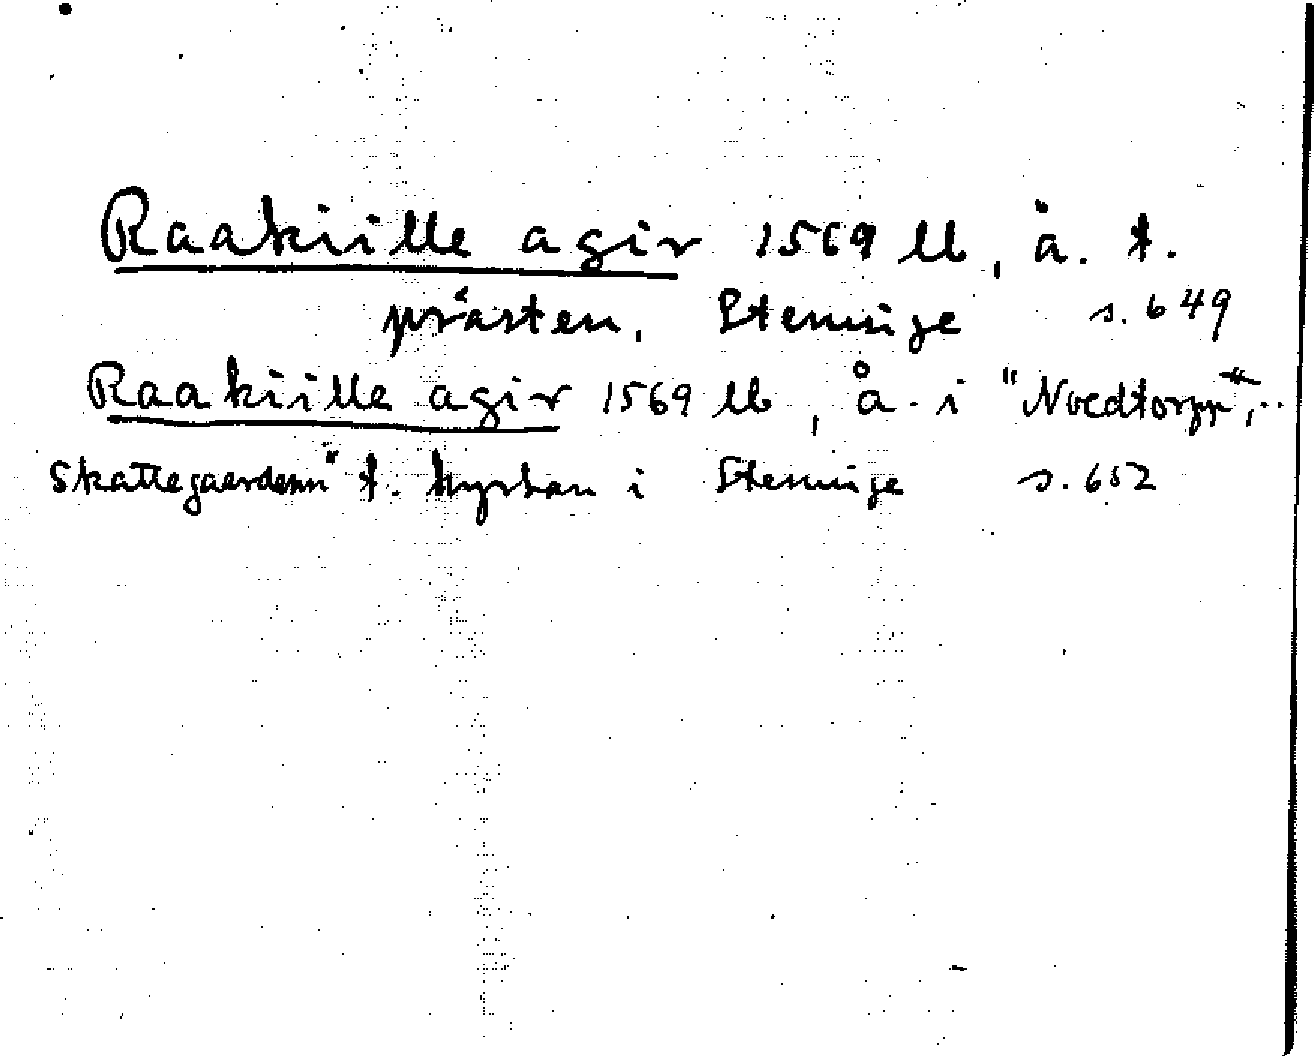 Raakiille agir 1569 lb, å. t.
prästen, Steninge s. 649
Raakiille agir 1569 lb, å. i "Noedtorpp",
Skattegaardenn" t. kyrkan i Steninge s. 652